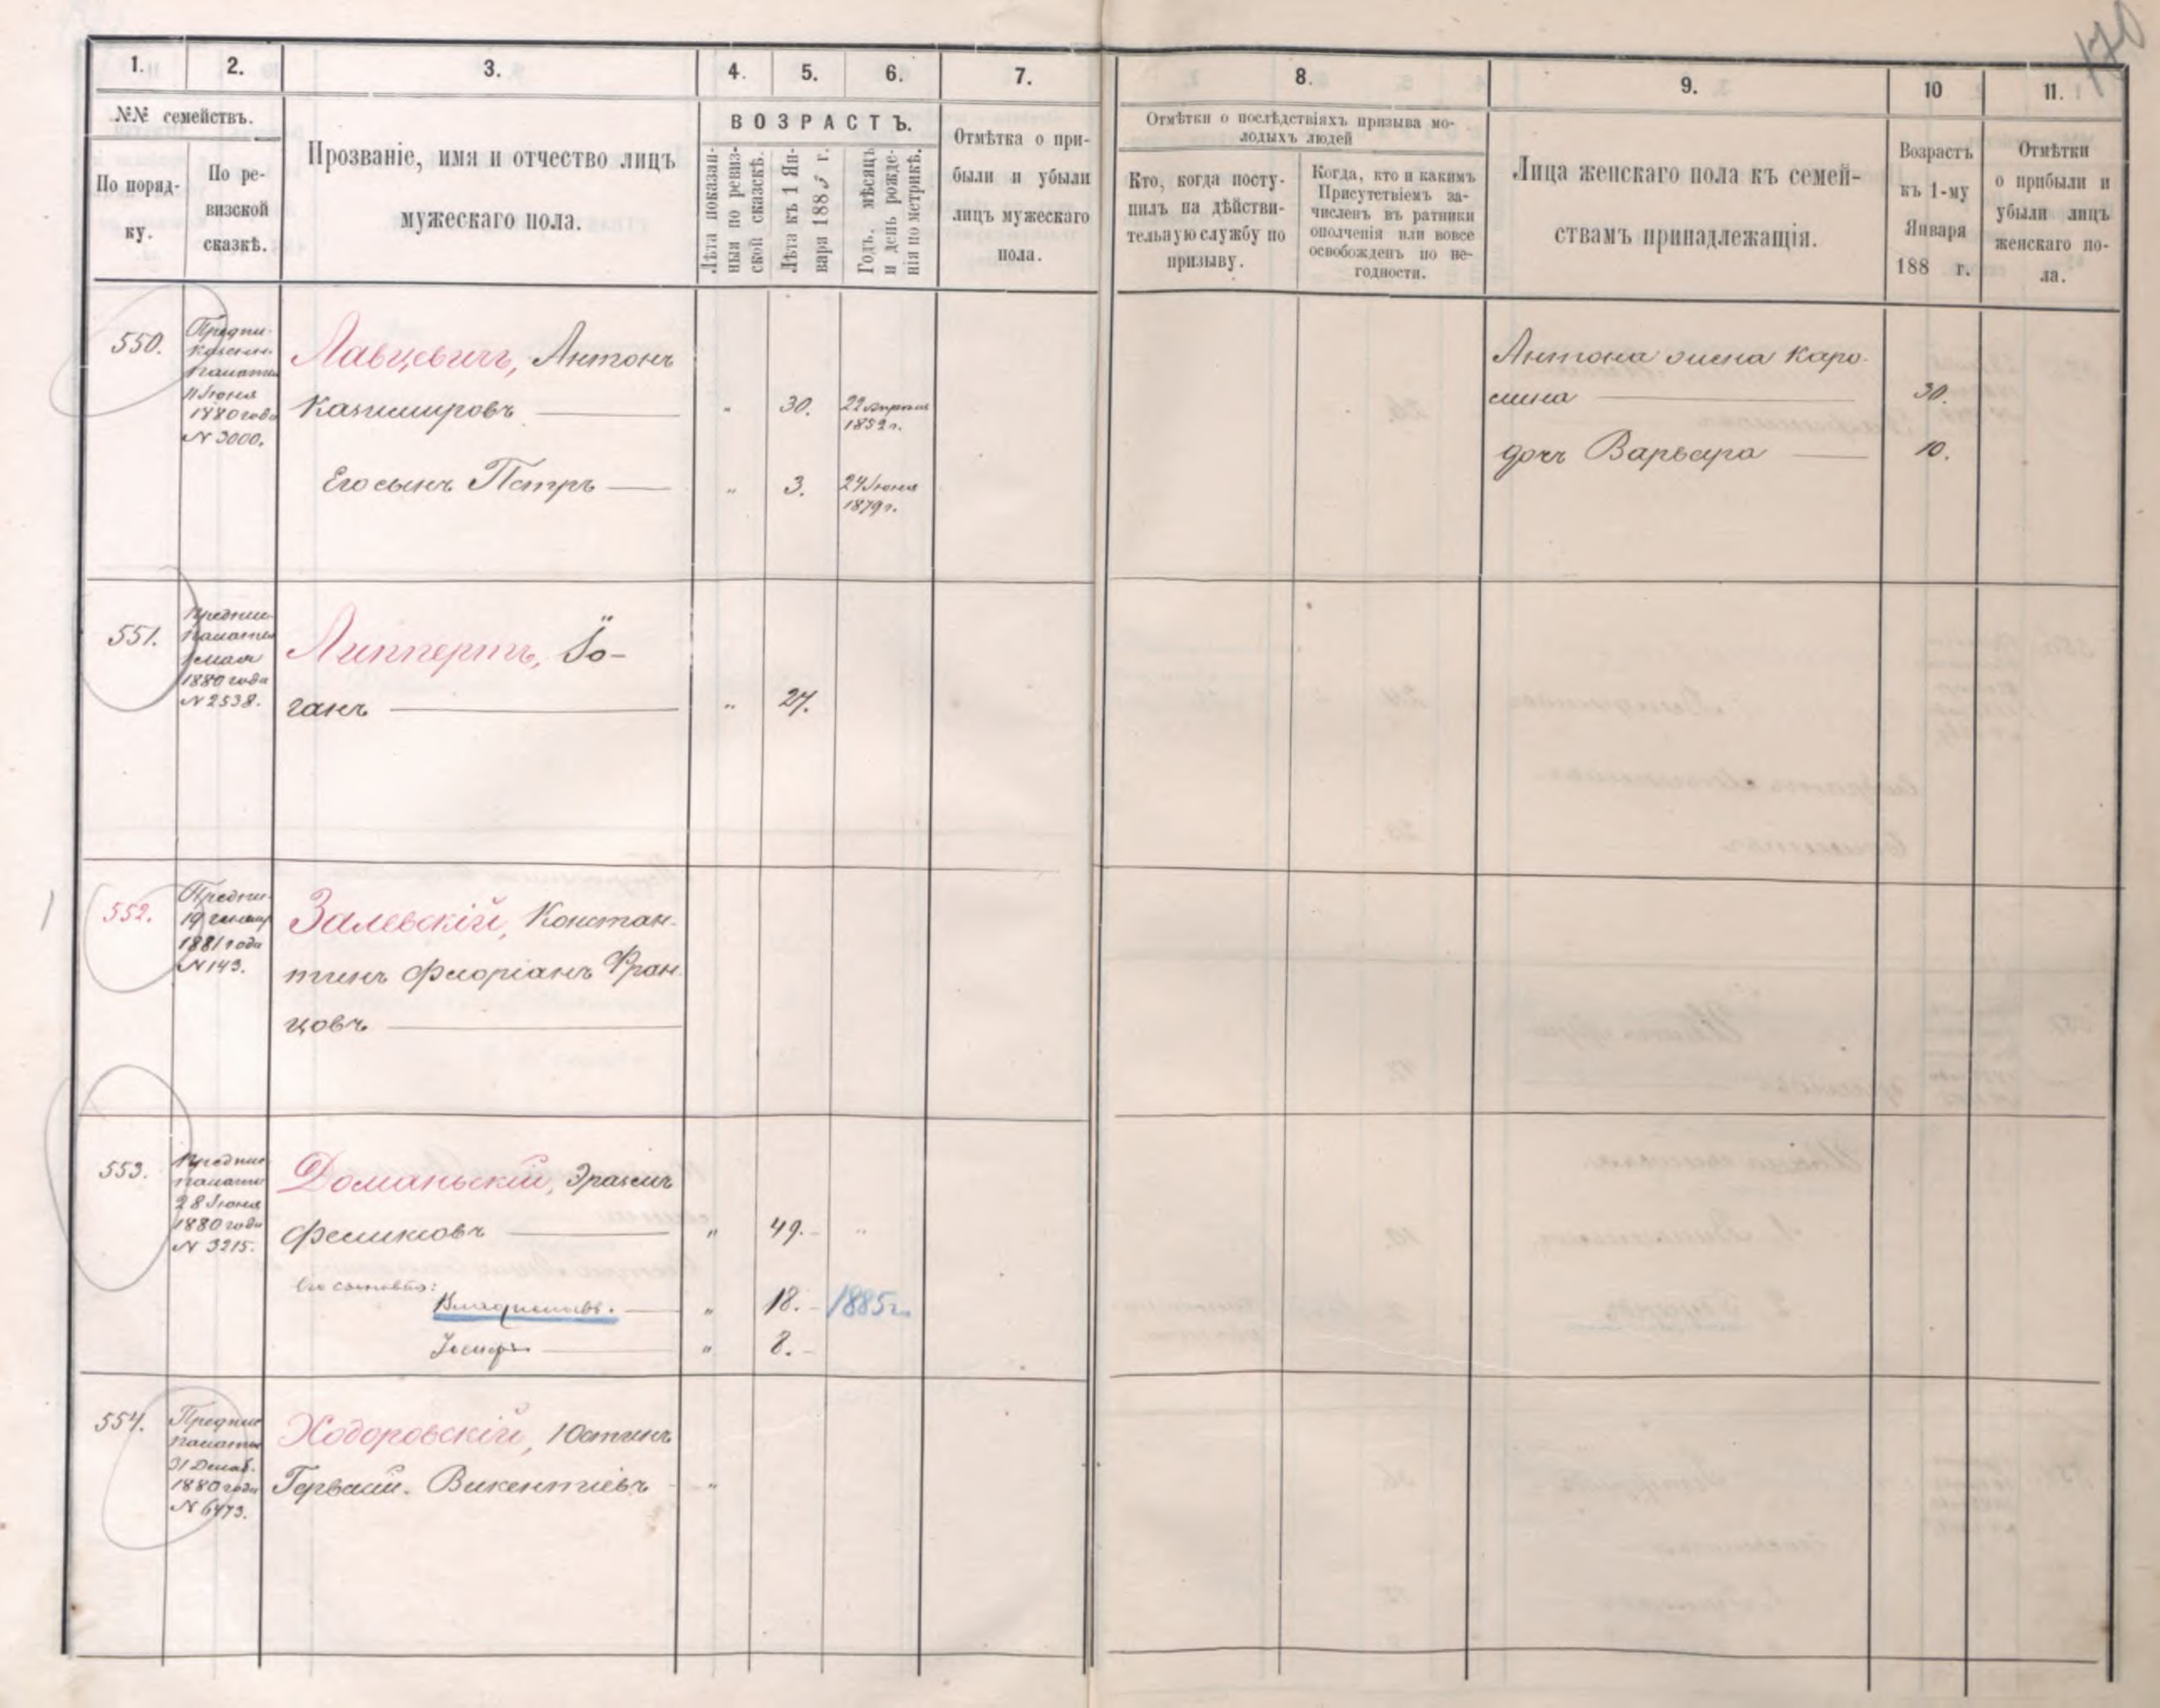 170
1.
2.
3.
4.
5.
6.
7.
8.
9.
10
11.
№№ семействъ.
По поряд-
ку.
По ре-
визской
сказкѣ.
Прозваніе, имя и отчество лицъ
мужескаго пола.
ВОЗРАСТЪ.
Лѣта показан-
ныя по ревиз-
ской сказкѣ.
Лѣта къ 1 Ян-
варя 188 г.
Годъ, мѣсяцъ
и день рожде-
нія по метрикѣ.
Отмѣтка о при-
были и убыли
лицъ мужескаго
пола.
Отмѣтки о послѣдствіяхъ призыва мо-
лодыхъ людей
Кто, когда посту-
пилъ на дѣйстви-
тельную службу по
призыву.
Когда, кто и какимъ
Присутствіемъ за-
численъ въ ратники
ополченія или вовсе
освобожденъ по не-
годности.
Лица женскаго пола къ семей-
ствамъ принадлежащія.
Возрастъ
къ 1-му
Января
188 г.
Отмѣтки
о прибыли и
убыли лицъ
женскаго по-
ла.
550.
Предпи.
Казенн.
палаты
11 Іюня
1880 года
N 3000.
Лавцевичъ, Антонъ
Казимировъ
" 30. 22 Апрѣля
1852 г.
Его сынъ Петръ
" 3. 24 Іюня
1879 г.
Антона жена Каро-
лина 30.
дочь Варвара 10.
551.
Предпис.
палаты
1 мая
1880 года
N 2538.
Липпертъ, Іо-
ганъ " 27.
552.
Предпи.
19 генвар
1881 года
N 143.
Залевскій, Констан-
тинъ Флоріанъ Фран-
цовъ
553.
Предпис
палаты
28 Іюня
1880 года
N 3215.
Доманьскій, Эразмъ
Феликсовъ " 49. "
Его сыновья:
Владиславъ. " 18. 1885 г.
Іосифъ " 8.
554.
Предпис
палаты
31 Декаб.
1880 года
N 6473.
Ходоровскій, Юстинъ
Гервасій. Викентіевъ "